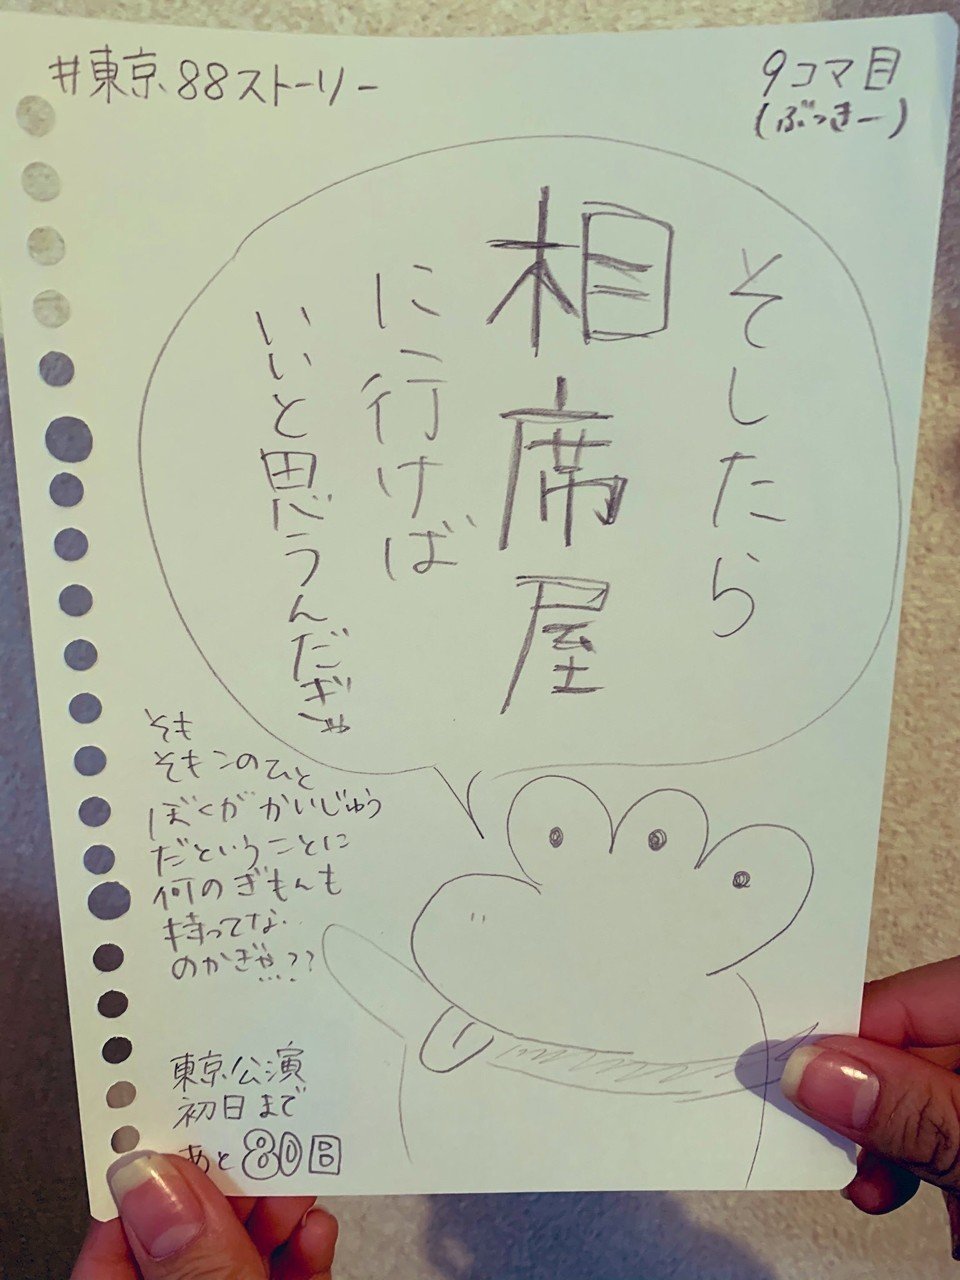 #東京88ストーリー
9コマ目
(ぶっきー)
そしたら
相席屋
に行けば
いいと思うんだぎゃ
そも
そもこのひと
ぼくがかいじゅう
だということに
何のぎもんも
持ってな
のかぎゃ…??
東京公演
初日まで
あと80日